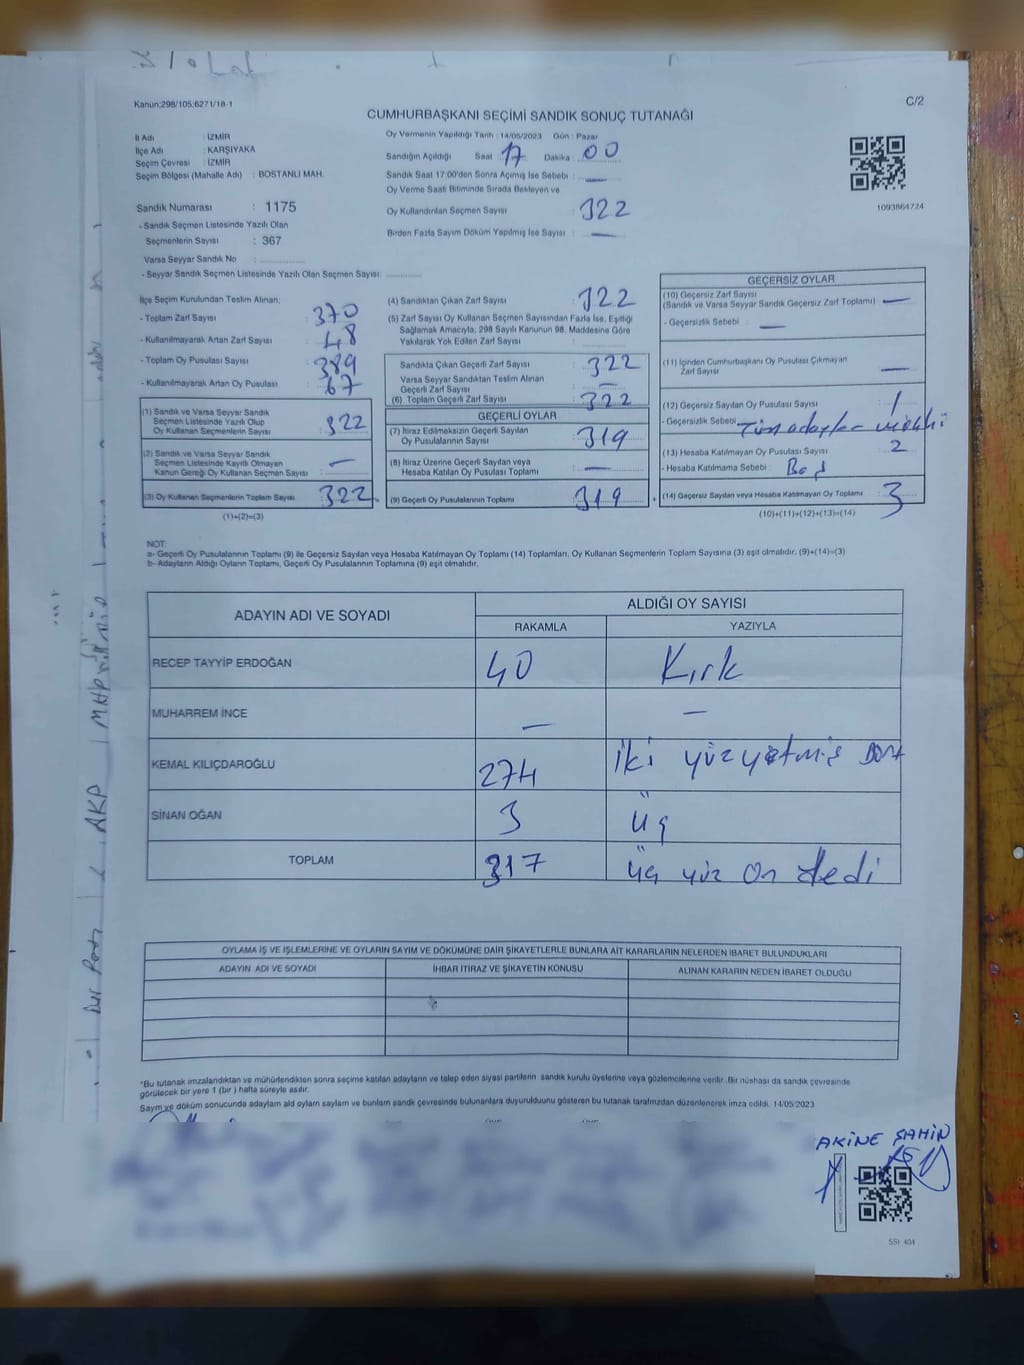 Kanun:298/105;6271/18-1
C/2
CUMHURBAŞKANI SEÇİMİ SANDIK SONUÇ TUTANAĞI
İl Adı : İZMİR
İlçe Adı : KARŞIYAKA
Seçim Çevresi : İZMİR
Seçim Bölgesi (Mahalle Adı) : BOSTANLI MAH.
Oy Vermenin Yapıldığı Tarih : 14/05/2023 Gün : Pazar
Sandığın Açıldığı Saat : 17 Dakika : 00
Sandık Saat 17:00'den Sonra Açılmış İse Sebebi : —
Oy Verme Saati Bitiminde Sırada Bekleyen ve
Oy Kullandırılan Seçmen Sayısı : 322
Birden Fazla Sayım Döküm Yapılmış İse Sayısı : —
1093864724
Sandık Numarası : 1175
- Sandık Seçmen Listesinde Yazılı Olan
Seçmenlerin Sayısı : 367
Varsa Seyyar Sandık No :
- Seyyar Sandık Seçmen Listesinde Yazılı Olan Seçmen Sayısı :
İlçe Seçim Kurulundan Teslim Alınan;
- Toplam Zarf Sayısı : 370
- Kullanılmayarak Artan Zarf Sayısı : 48
- Toplam Oy Pusulası Sayısı : 389
- Kullanılmayarak Artan Oy Pusulası : 67
(1) Sandık ve Varsa Seyyar Sandık
Seçmen Listesinde Yazılı Olup
Oy Kullanan Seçmenlerin Sayısı : 322
(2) Sandık ve Varsa Seyyar Sandık
Seçmen Listesinde Kayıtlı Olmayan
Kanun Gereği Oy Kullanan Seçmen Sayısı : —
(3) Oy Kullanan Seçmenlerin Toplam Sayısı : 322
(1)+(2)=(3)
(4) Sandıktan Çıkan Zarf Sayısı : 322
(5) Zarf Sayısı Oy Kullanan Seçmen Sayısından Fazla İse, Eşitliği
Sağlamak Amacıyla; 298 Sayılı Kanunun 98. Maddesine Göre
Yakılarak Yok Edilen Zarf Sayısı :
Sandıkta Çıkan Geçerli Zarf Sayısı : 322
Varsa Seyyar Sandıktan Teslim Alınan
Geçerli Zarf Sayısı : —
(6) Toplam Geçerli Zarf Sayısı : 322
GEÇERLİ OYLAR
(7) İtiraz Edilmeksizin Geçerli Sayılan
Oy Pusulalarının Sayısı : 319
(8) İtiraz Üzerine Geçerli Sayılan veya
Hesaba Katılan Oy Pusulası Toplamı : —
(9) Geçerli Oy Pusulalarının Toplamı : 319
GEÇERSİZ OYLAR
(10) Geçersiz Zarf Sayısı
(Sandık ve Varsa Seyyar Sandık Geçersiz Zarf Toplamı) : —
- Geçersizlik Sebebi : —
(11) İçinden Cumhurbaşkanı Oy Pusulası Çıkmayan
Zarf Sayısı : —
(12) Geçersiz Sayılan Oy Pusulası Sayısı : 1
- Geçersizlik Sebebi : Tüm adaylar
(13) Hesaba Katılmayan Oy Pusulası Sayısı : 2
- Hesaba Katılmama Sebebi : Boş
(14) Geçersiz Sayılan veya Hesaba Katılmayan Oy Toplamı : 3
(10)+(11)+(12)+(13)=(14)
NOT:
a- Geçerli Oy Pusulalarının Toplamı (9) ile Geçersiz Sayılan veya Hesaba Katılmayan Oy Toplamı (14) Toplamları, Oy Kullanan Seçmenlerin Toplam Sayısına (3) eşit olmalıdır. (9)+(14)=(3)
b- Adayların Aldığı Oyların Toplamı, Geçerli Oy Pusulalarının Toplamına (9) eşit olmalıdır.
ADAYIN ADI VE SOYADI
ALDIĞI OY SAYISI
RAKAMLA YAZIYLA
RECEP TAYYİP ERDOĞAN 40 Kırk
MUHARREM İNCE — —
KEMAL KILIÇDAROĞLU 274 iki yüz yetmiş Dört
SİNAN OĞAN 3 üç
TOPLAM 317 üç yüz on dedi
OYLAMA İŞ VE İŞLEMLERİNE VE OYLARIN SAYIM VE DÖKÜMÜNE DAİR ŞİKAYETLERLE BUNLARA AİT KARARLARIN NELERDEN İBARET BULUNDUKLARI
ADAYIN ADI VE SOYADI İHBAR İTİRAZ VE ŞİKAYETİN KONUSU ALINAN KARARIN NEDEN İBARET OLDUĞU
*Bu tutanak imzalandıktan ve mühürlendikten sonra seçime katılan adayların ve talep eden siyasi partilerin sandık kurulu üyelerine veya gözlemcilerine verilir. Bir nüshası da sandık çevresinde
görülecek bir yere 1 (bir) hafta süreyle asılır.
Sayım ve döküm sonucunda adayların aldı oyların sayıların ve bunların sandık çevresinde bulunanlara duyurulduunu gösteren bu tutanak tarafımızdan düzenlenerek imza edildi. 14/05/2023
AKİNE ŞAHİN
SSI 404
AKP
MHP